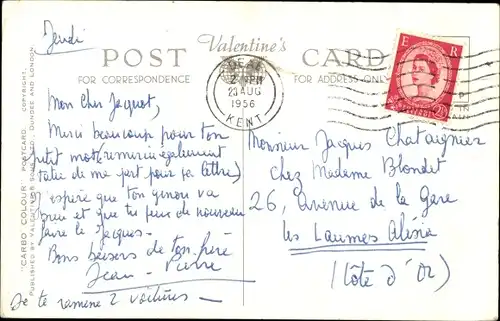 Jeudi
POST CARD
Valentine's
FOR CORRESPONDENCE
FOR ADDRESS ONLY
DEAL
2 PM
23 AUG
1956
KENT
E R
Mon Cher Jacquot,
Merci beaucoup pour ton
petit mot (remercie également
tatie de ma part pour sa lettre)
J'espère que ton genou va
mieux et que tu peux de nouveau
faire le Jacques -
Bons baisers de ton frère
Jean-Pierre
Je te ramène 2 voitures -
Monsieur Jacques Chataignier
chez Madame Blondet
26, Avenue de la Gare
Les Laumes Alésia
(Côte d'Or)
"CARBO COLOUR" POSTCARD. COPYRIGHT.
PUBLISHED BY VALENTINE & SONS LTD., DUNDEE AND LONDON.